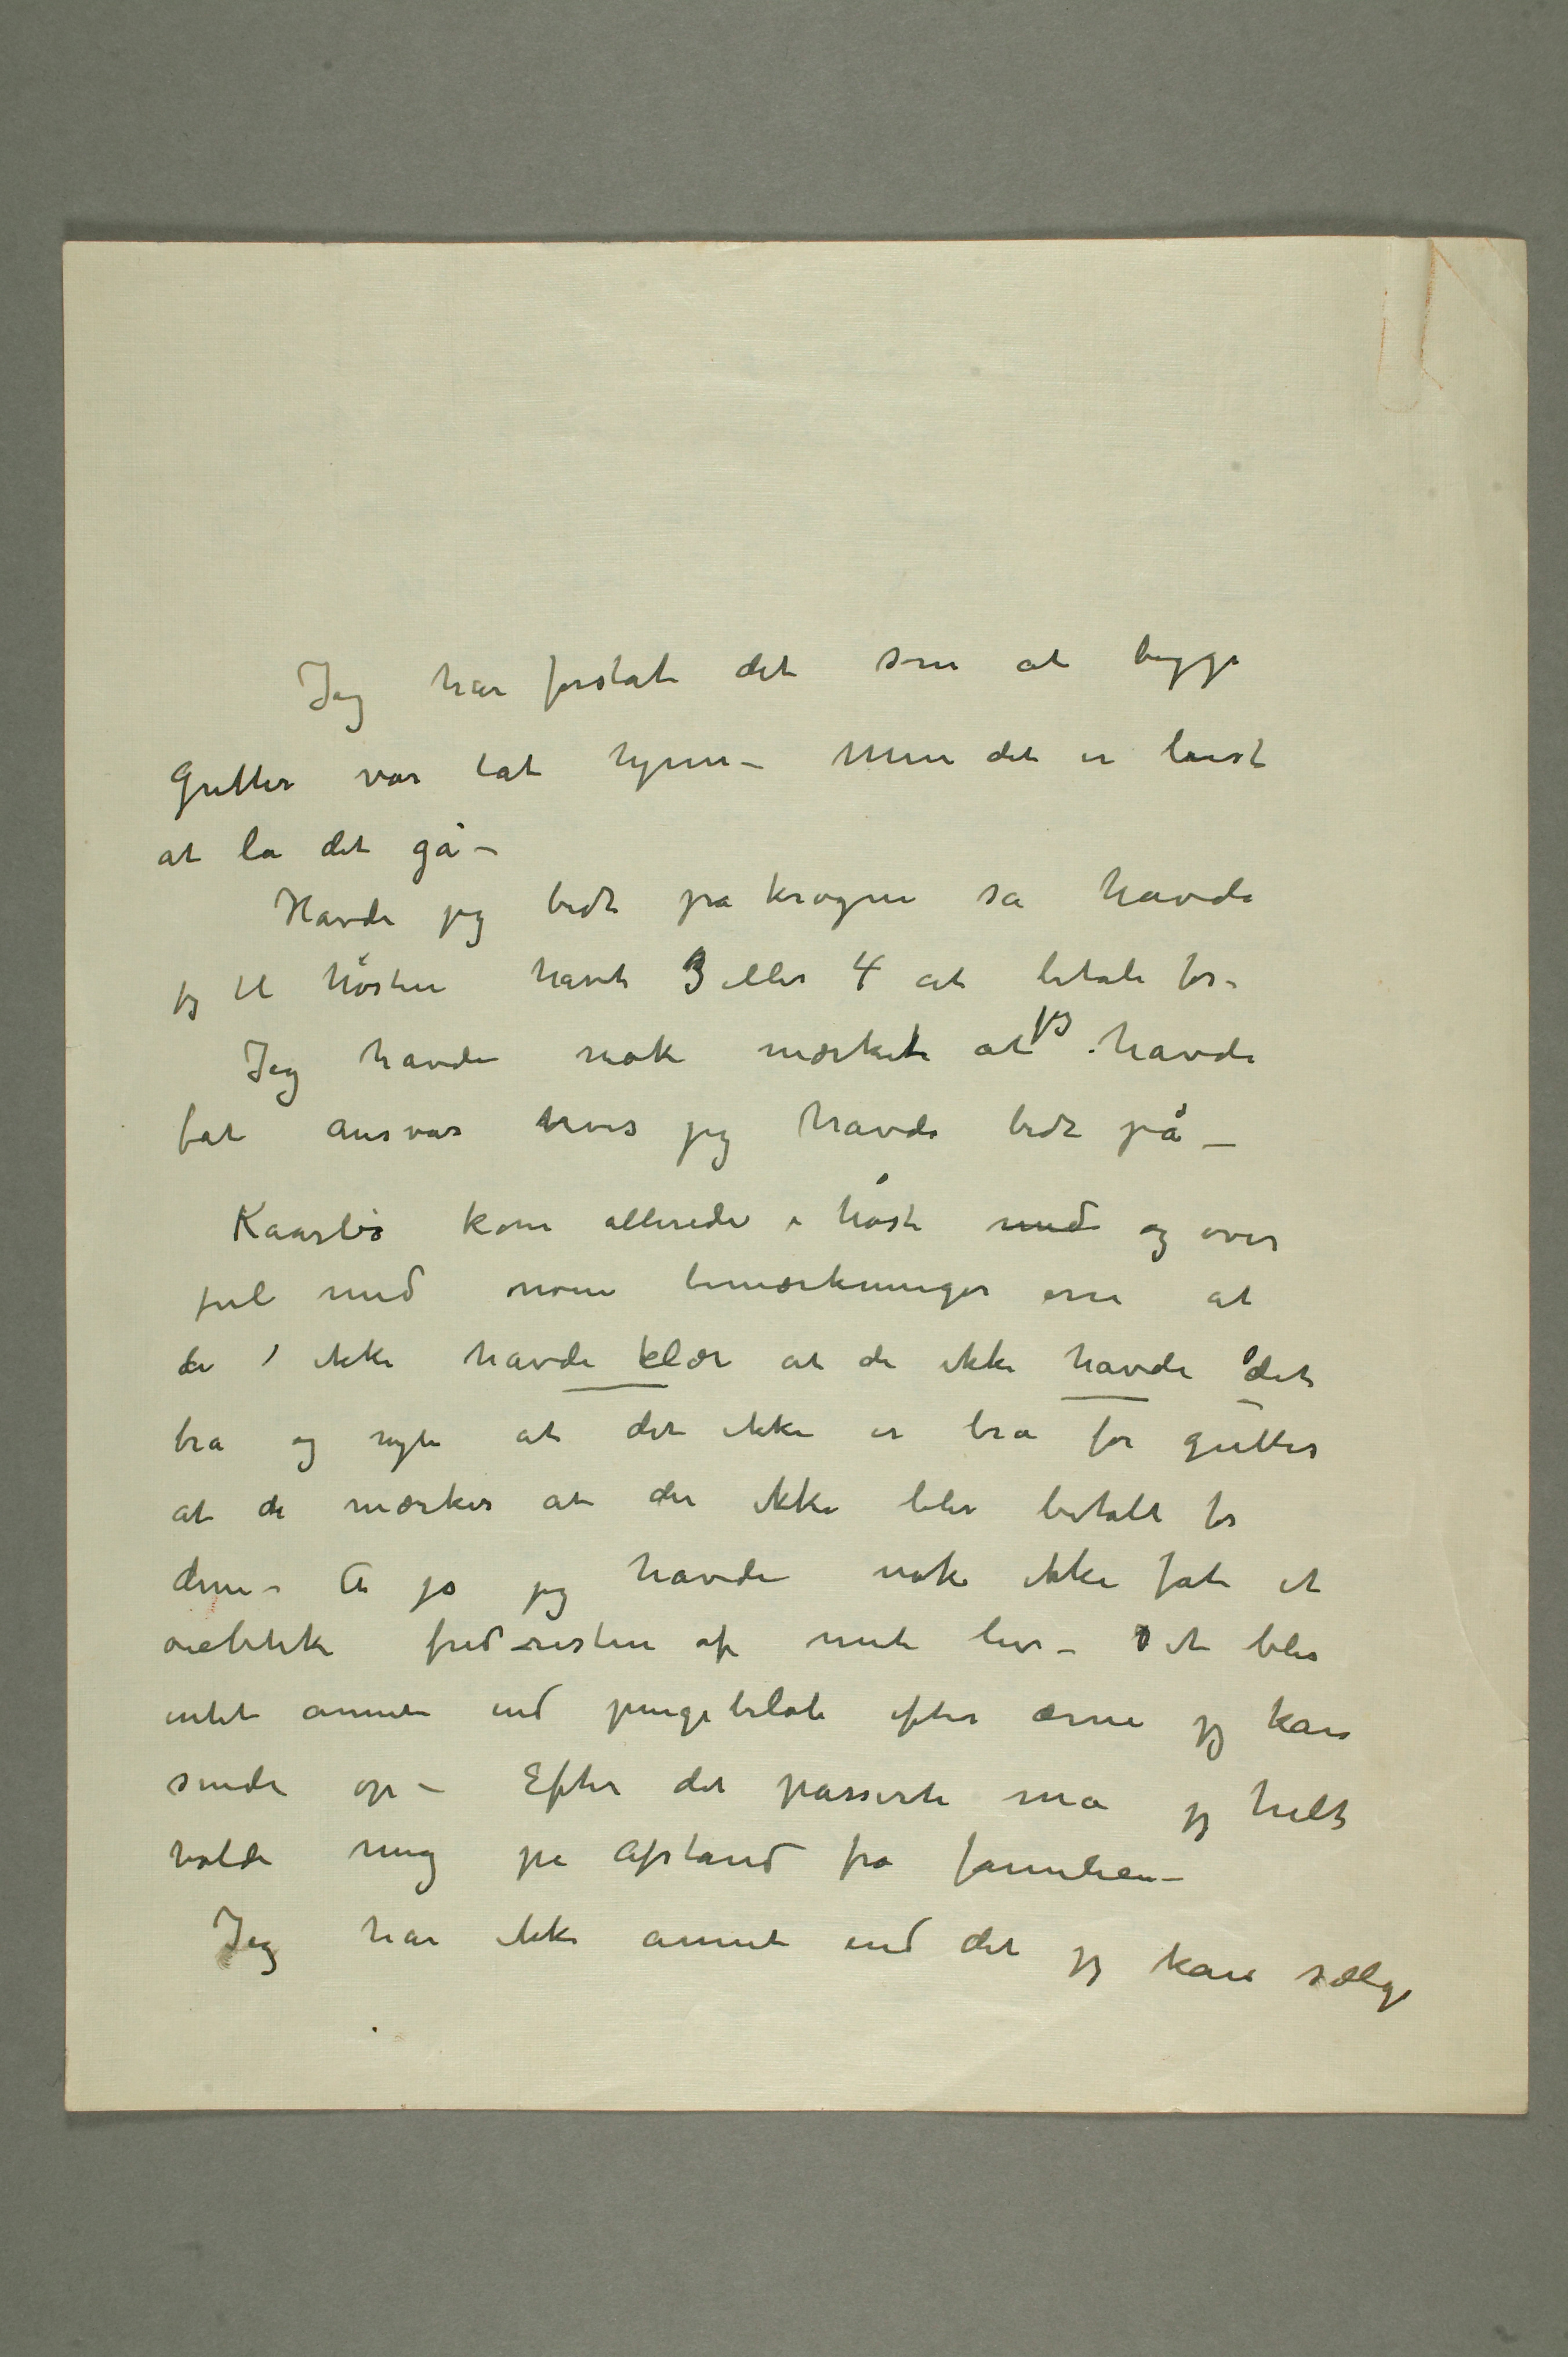 Jeg har forstat det som at begge
Gutter var tat hjem – Men det er bedst
at la det gå –
Havde jeg bidt på krogen så havde
jeg til høsten havt 3 eller 4 at betale for –
Jeg havde nok mærket at jeg havde
fåt ansvar hvis jeg havde bidt på –
Kaarbø kom allerede i høst med og over
jul med noen bemærkninger om at
de ikke havde klær at de ikke havde det
bra og sygte at det ikke er bra for gutter
at de mærker at der ikke blir betalt for
dem – Å jo jeg havde nok ikke fåt et
øieblik fred resten af mit liv – Det blir
intet annet end pengebeløb efter ævne jeg kan
sende op – Efter det passerte må jeg helt
holde mig på Afstand fra familien –
Jeg har ikke annet end det jeg kan sælge